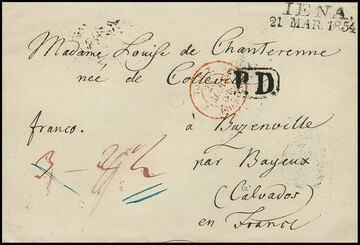 IENA.
21 MAR. 1854
Madame Louise de Chanterenne
née de Colleville
P.D.
franco.
à Bazenville
par Bayeux
(Calvados)
en France